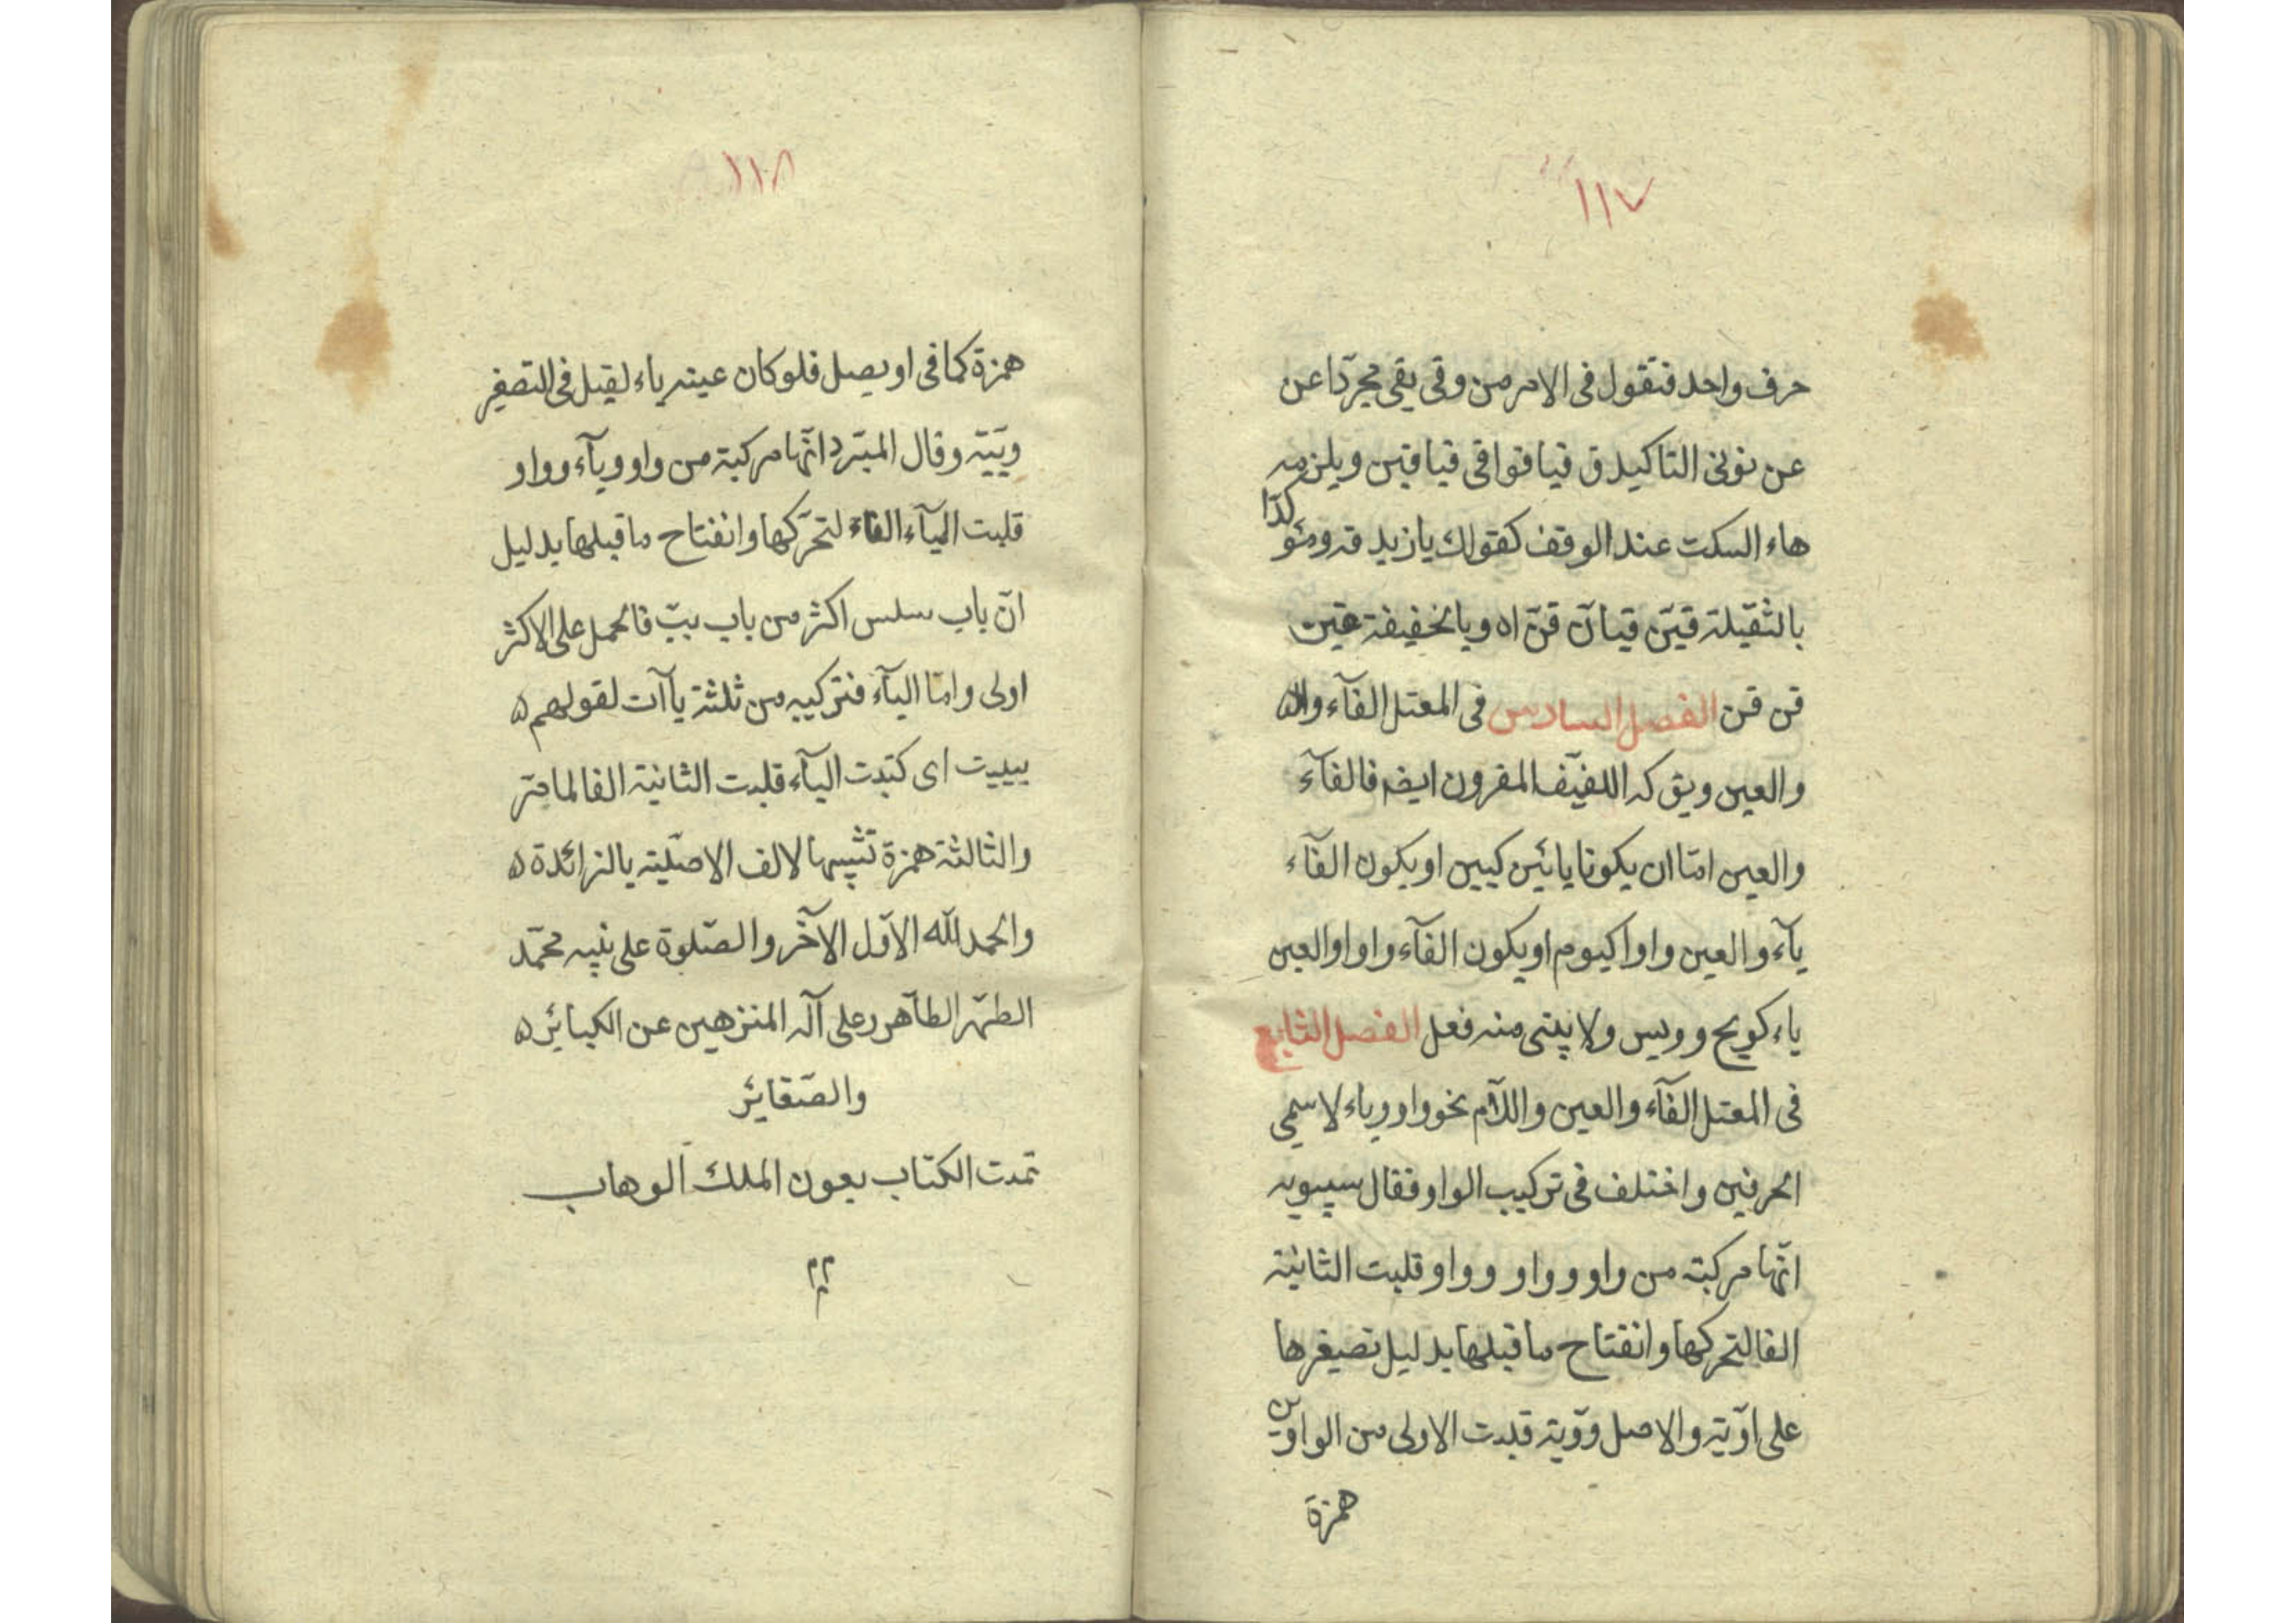 ١١٧
حرف واحد فتقول فى الامر من وقى يقى مجرّدا عن
عن نونى التاكيد ق قيا قوا قى قيا قين ويلزمه
هاء السكت عند الوقف كقولك يا زيد قه ومئو
كدا
بالثقيلة قينّ قيانّ قنّ اه وبالخفيفة
قن قن الفصل السادس فى المعتل الفآء
والعين ويق له اللفيف المقرون ايضم فالفآء
والعين امّا ان يكونا يائين كيين او يكون الفآء
يآء والعين واوا كيوم او يكون الفآء واوا والعين
ياء كويح وويس ولا يبنى منه فعل الفصل السابع
فى المعتل الفآء والعين واللآم نحو واو وياء لاسمى
الحرفين واختلف فى تركيب الواو فقال سيبويه
انّها مركبة من واو وواو وواو قلبت الثانية
الفا لتحركها وانفتاح ما قبلها بدليل تصيغرها
على اوّية والاصل ووّية قلبت الاولى من الواوين
همزة
١١٨
همزة كما فى اويصل فلو كان عينه ياء لقيل فى التصغير
وييّة وقال المبّرد انّها مركبة من واو ويآء وواو
قلبت اليآء الفاء لتحرّكها وانفتاح ما قبلها بدليل
انّ باب سلس اكثر من باب ببّ فالحمل على الاكثر
اولى وامّا اليآء فتركيبه من ثلثة ياآت لقولهم
يييت اى كتبت اليآء قلبت الثانية الفا لما مرّ
والثالثة همزة تشبيها لالف الاصلّية بالزائدة
والحمد للّه الاوّل الآخر والصّلوة على نبيه محمّد
الطهّر الطاهر وعلى آله المنزهين عن الكبائر
والصّغائر
تمت الكتاب بعون الملك الوهاب